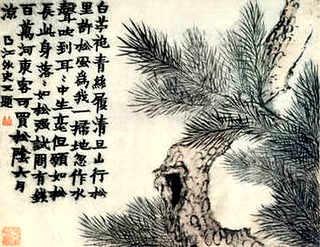 白苧袍青絲履清旦山行松
里許松風為我一掃地忽作水
聲吹到耳〻中生毫但願如松
長此身落〻如松試問有錢
百萬河東客可買松陰六月
涼 曲江外史題